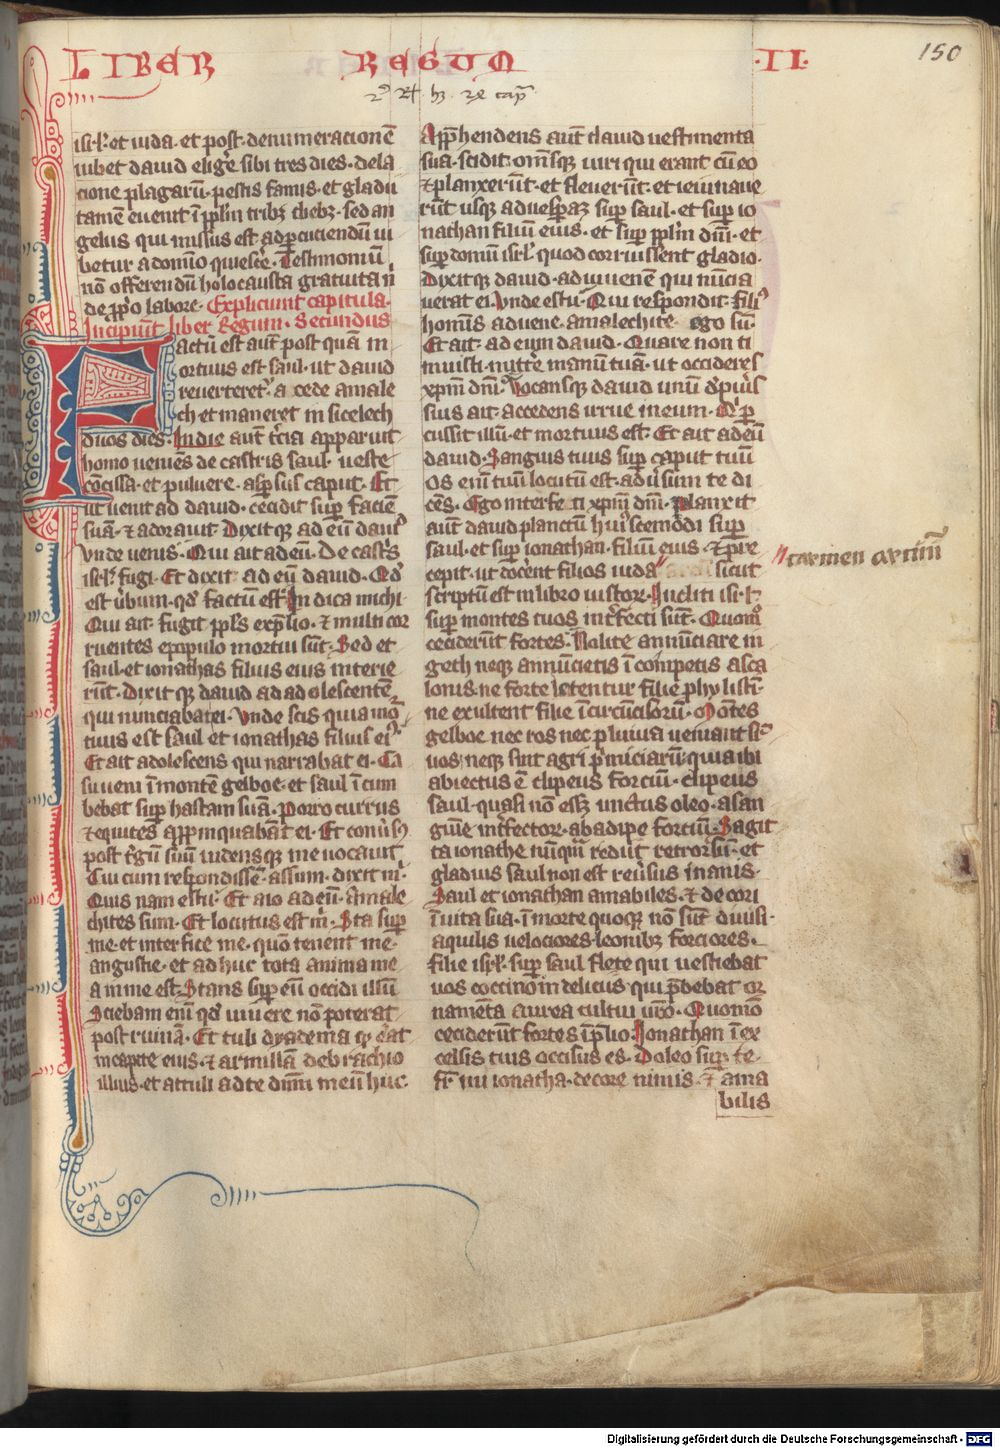 LIBER REGUM .II.
150
isrl' et iuda. et post denumeracionē
iubet dauid eligere sibi tres dies. dela
cione plagarū. pestis famis. et gladii
tamē euenit ī pplm tribꝫ diebꝫ. sed an
gelus qui missus est ad ꝑcuciendū iu
betur a domino quiescere. Testimoniū
nō offerendū holocausta gratuita nˡ
de ꝓpo labore. Expliciunt capitula.
Incipiunt liber Regum. Secundus
Factū est aūt post quā m
ortuus est saul. ut dauid
reuerteretʳ. a cede amale
ch et maneret in sicelech
duos dies. In die aūt tercia apparuit
homo ueniēs de castris saul. ueste
cōcissa. et puluere. asꝑsus caput. Et
ut uenit ad dauid. cecidit suꝑ faciē
suā. ⁊ adorauit. Dixitqꝫ ad eū dauiᵈ
Vnde uenis. Qui ait ad eū. De castrˢ
isrl' fugi. Et dixit ad eū dauid. Qđ
est ūbum. qđ factū est. Indica michi
Qui ait. fugit ppl's ex p̄lio. ⁊ multi cor
ruentes e populo mortui sūt. Sed et
saul. et ionathas filius eius interie
rūt. dixitqꝫ dauid ad adolescentē
qui nunciabat ei. Vnde scis quia mor
tuus est saul et ionathas filius eiˀ.
Et ait adolescens qui narrabat ei. Ca
su ueni ī montē gelboe. et saul īcum
bebat suꝑ hastam suā. Porro currus
⁊ equites apꝓinquabāt ei. Et conūsˀ
post t̄gū suū uidensqꝫ me uocauit.
Cui cum respondissē. assum. dixit m̄.
Quis nam es tu. Et aio ad eū. Amale
chites sum. Et locutus est m̄. Sta suꝑ
me. et interfice me. quō tenent me
angustie. et adhuc tota anima me
a in me est. Stans suꝑ eū occidi illū
Sciebam enī qđ uiuere nō poterat
post ruinā. Et tuli dyadema qđ erat
in capite eius. ⁊ armillā de brachio
illius. et attuli ad te dn̄m meū huc.
App̄hendens aūt dauid uestimenta
sua. scidit. omīsqꝫ uiri qui erant cū eo
⁊ planxerūt. et fleuerūt. et ieiunaue
rūt usqꝫ ad uesꝑaꝫ suꝑ saul. et suꝑ io
nathan filiū eius. et suꝑ pplm dn̄i. et
suꝑ domū isrl'. quod corruissent gladio.
Dixitqꝫ dauid. ad iuuenē qui nūcia
uerat ei. Vnde es tu. Qui respondit. filiˀ
hominis aduene. amalechite ego sū.
Et ait ad eum dauid. Quare non ti
muisti. mittere manū tuā. ut occideres
xp̄m dn̄i. Vocansqꝫ dauid unū de pueris
suis ait. accedens irrue in eum. Qi ꝑ
cussit illū. et mortuus est. Et ait ad eū
dauid. Sanguis tuus suꝑ caput tuū
Os enī tuū locutū est. aduersum te di
cēs. Ego interfeci xp̄m dn̄i. Planxit
aūt dauid planctū huiuscemodi suꝑ
saul. et suꝑ ionathan. filiū eius. ⁊ p̄re
cepit. ut docēt filios iuda sicut
carmen arcuū
scriptū est in libro iustor. Incliti isrl'
suꝑ montes tuos interfecti sūt. Quomᵒ
ceciderūt fortes. Nolite annūciare in
geth neqꝫ annūcietis ī competis asca
lonis. ne forte letentur filie phylistī
ne exultent filie īcircūcisorū. Montes
gelboe nec ros nec pluuia ueniant suꝑ
uos. neqꝫ sint agri p̄miciarū. quia ibi
abiectus ē clipeus forciū. clipeus
saul. quasi nō essꝫ unctus oleo. a san
guīe interfectorꝫ. ab adipe forciū. Sagit
ta ionathe nūqm̄ rediit retrorsū. et
gladius saul non est reūsus inanis.
Saul et ionathan amabiles. ⁊ decori
ī uita sua. ī morte quoqꝫ nō sūt diuisi.
aquilis uelociores. leonibꝫ forciores.
filie isrl'. suꝑ saul flete qui uestiebat
uos coccino in deliciis. qui p̄bebat or
namēta aurea cultui uestro. Quomō
ceciderūt fortes ī p̄lio. Ionathan ī ex
celsis tuis occisus es. Doleo suꝑ te
fr̄ mi ionatha. decore nimis. ⁊ ama
bilis
Digitalisierung gefördert durch die Deutsche Forschungsgemeinschaft - DFG